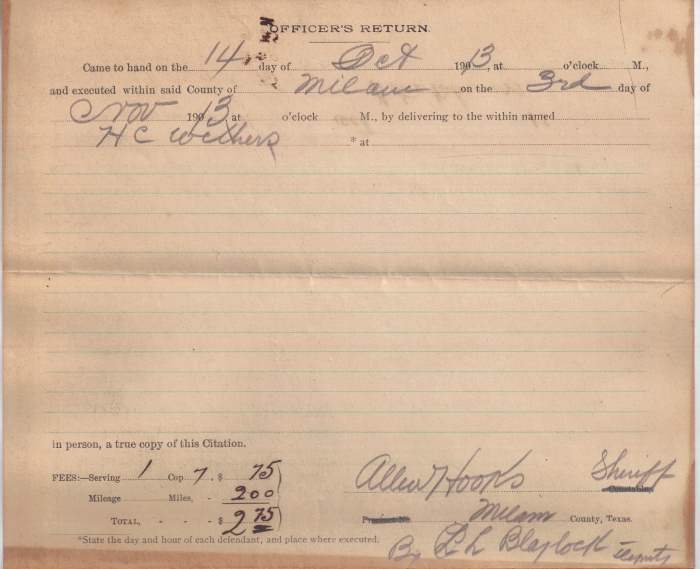 OFFICER'S RETURN.
Came to hand on the 14 day of Oct 1913, at o'clock M.,
and executed within said County of Milam on the 3rd day of
Nov 1913 at o'clock M., by delivering to the within named
H C Withers * at
in person, a true copy of this Citation.
FEES:—Serving 1 Cop y, $ 75
Mileage Miles, - 200
TOTAL, - - - $ 2 75
Allen Hooks Sheriff Constable,
Precinct No. Milam County, Texas.
*State the day and hour of each defendant, and place where executed.
By L L Blaylock Deputy